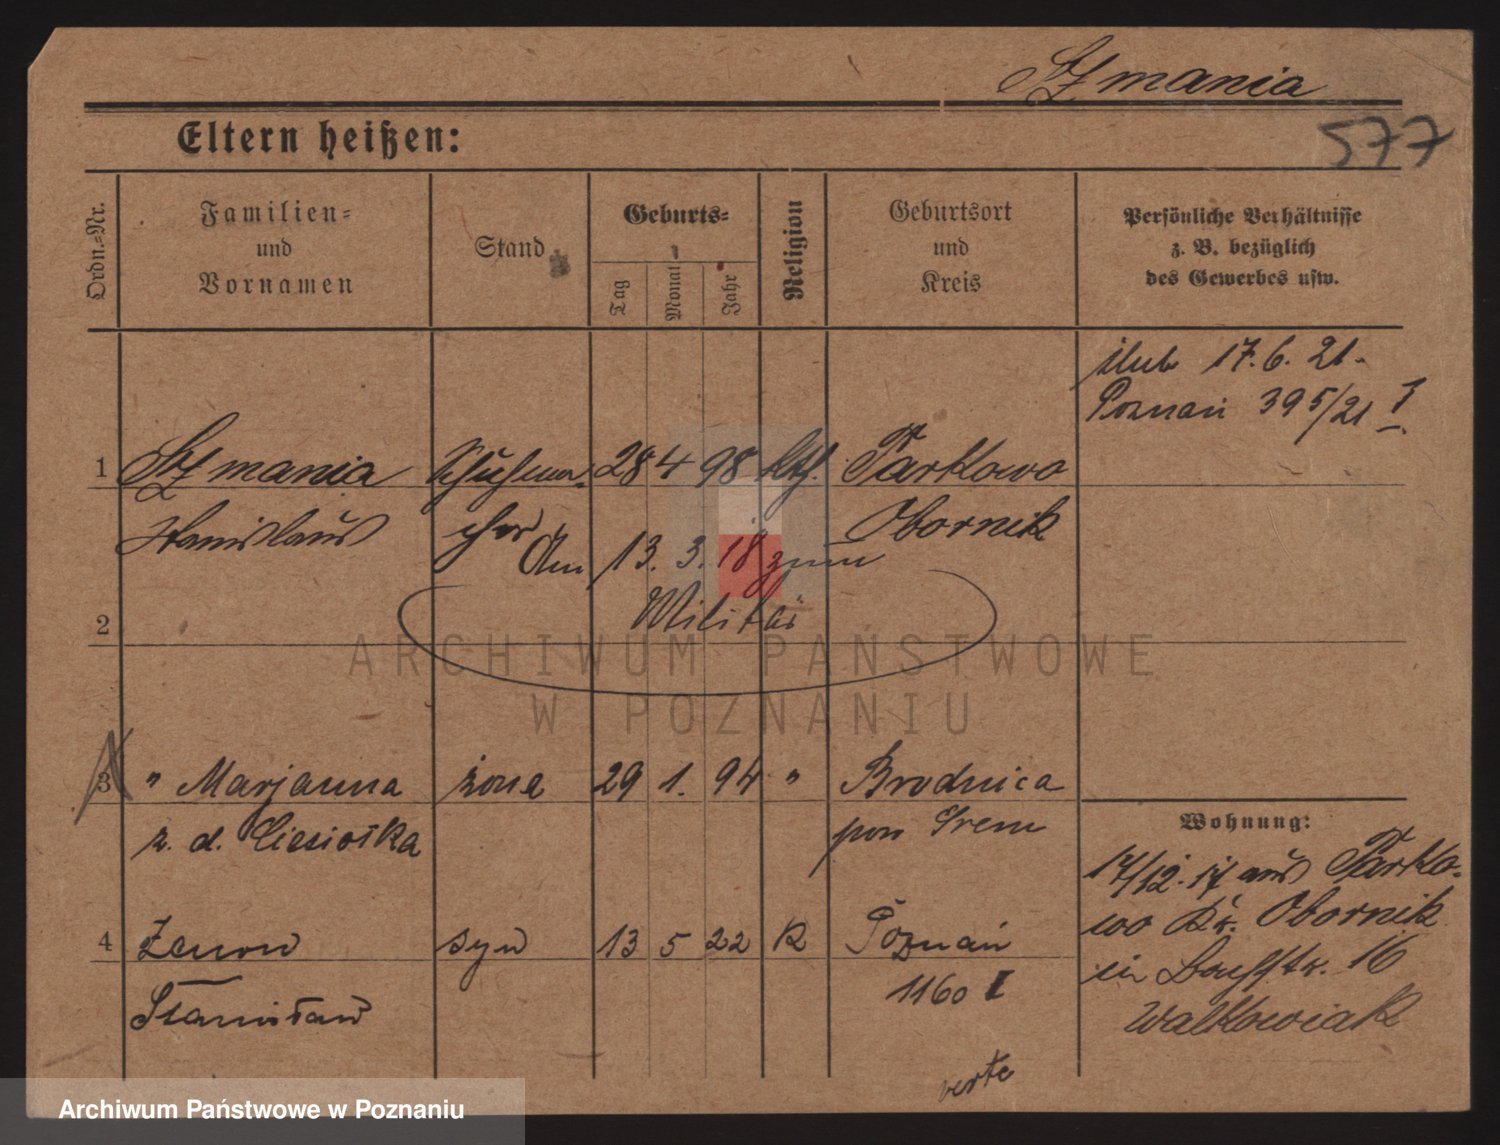 Szmania
577
Eltern heißen:
Ordn.=Nr.
Familien=
und
Vornamen
Stand
Geburts=
Tag
Monat
Jahr
Religion
Geburtsort
und
Kreis
Persönliche Verhältnisse
z. B. bezüglich
des Gewerbes usw.
ślub 17.6.21.
Poznań 395/21 I
1 Szmania Schuhma= 28 4 98 kth. Parkowo
Stanislaus cher Obornik
Am 13. 3. 18 zum
2 Militär
ARCHIWUM PAŃSTWOWE
W POZNANIU
3 " Marjanna żona 29 1. 94 " Brodnica
z. d. Ciesiołka pow Śrem
Wohnung:
17/12.17 aus Parko=
wo Kr. Obornik
in 16
Walkowiak
4 Zenon syn 13 5 22 K Poznań
Stanisław 1160 I
verte
Archiwum Państwowe w Poznaniu